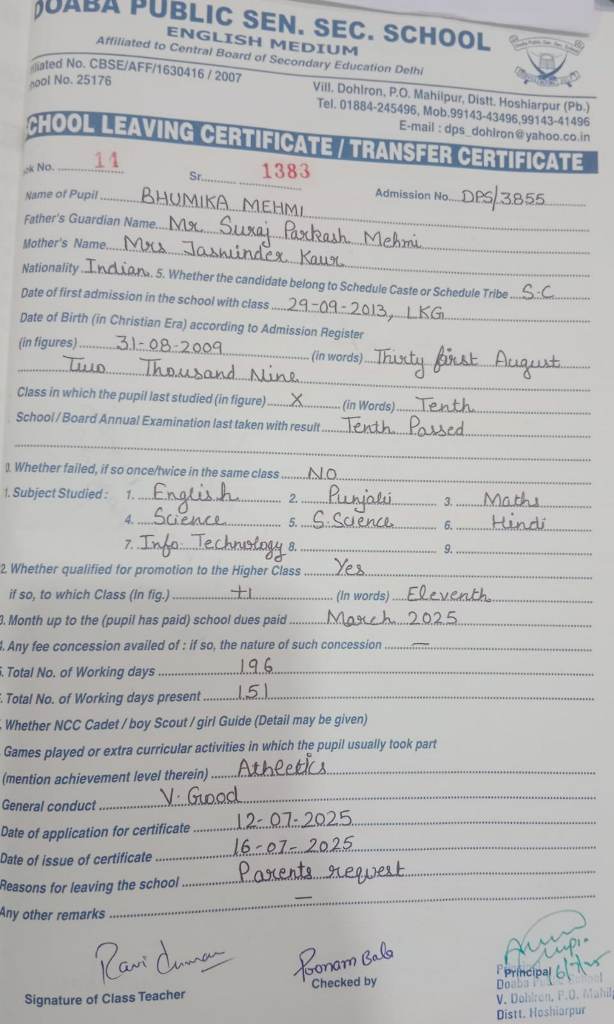 DOABA PUBLIC SEN. SEC. SCHOOL
ENGLISH MEDIUM
Affiliated to Central Board of Secondary Education Delhi
liated No. CBSE/AFF/1630416 / 2007
ool No. 25176
Vill. Dohlron, P.O. Mahilpur, Distt. Hoshiarpur (Pb.)
Tel. 01884-245496, Mob.99143-43496,99143-41496
E-mail : dps_dohlron@yahoo.co.in
CHOOL LEAVING CERTIFICATE / TRANSFER CERTIFICATE
ok No. 14 Sr. 1383 Admission No. DPS/3855
Name of Pupil BHUMIKA MEHMI
Father's Guardian Name Mr Suraj Parkash Mehmi
Mother's Name Mrs Jaswinder Kaur
Nationality Indian 5. Whether the candidate belong to Schedule Caste or Schedule Tribe S.C
Date of first admission in the school with class 29-09-2013, LKG
Date of Birth (in Christian Era) according to Admission Register
(in figures) 31-08-2009 (in words) Thirty first August
Two Thousand Nine
Class in which the pupil last studied (in figure) X (in Words) Tenth
School / Board Annual Examination last taken with result Tenth Passed
0. Whether failed, if so once/twice in the same class NO
1. Subject Studied : 1. English 2. Punjabi 3. Maths
4. Science 5. S.Science 6. Hindi
7. Info. Technology 8. 9.
2. Whether qualified for promotion to the Higher Class Yes
if so, to which Class (In fig.) +1 (In words) Eleventh
3. Month up to the (pupil has paid) school dues paid March 2025
4. Any fee concession availed of : if so, the nature of such concession —
5. Total No. of Working days 196
Total No. of Working days present 151
Whether NCC Cadet / boy Scout / girl Guide (Detail may be given)
Games played or extra curricular activities in which the pupil usually took part
(mention achievement level therein) Athletics
General conduct V. Good
Date of application for certificate 12-07-2025
Date of issue of certificate 16-07-2025
Reasons for leaving the school Parents request
Any other remarks —
Ravi Kumar
Signature of Class Teacher
Poonam Bala
Checked by
Principal
Doaba Public School
V. Dohlron, P.O. Mahilp
Distt. Hoshiarpur